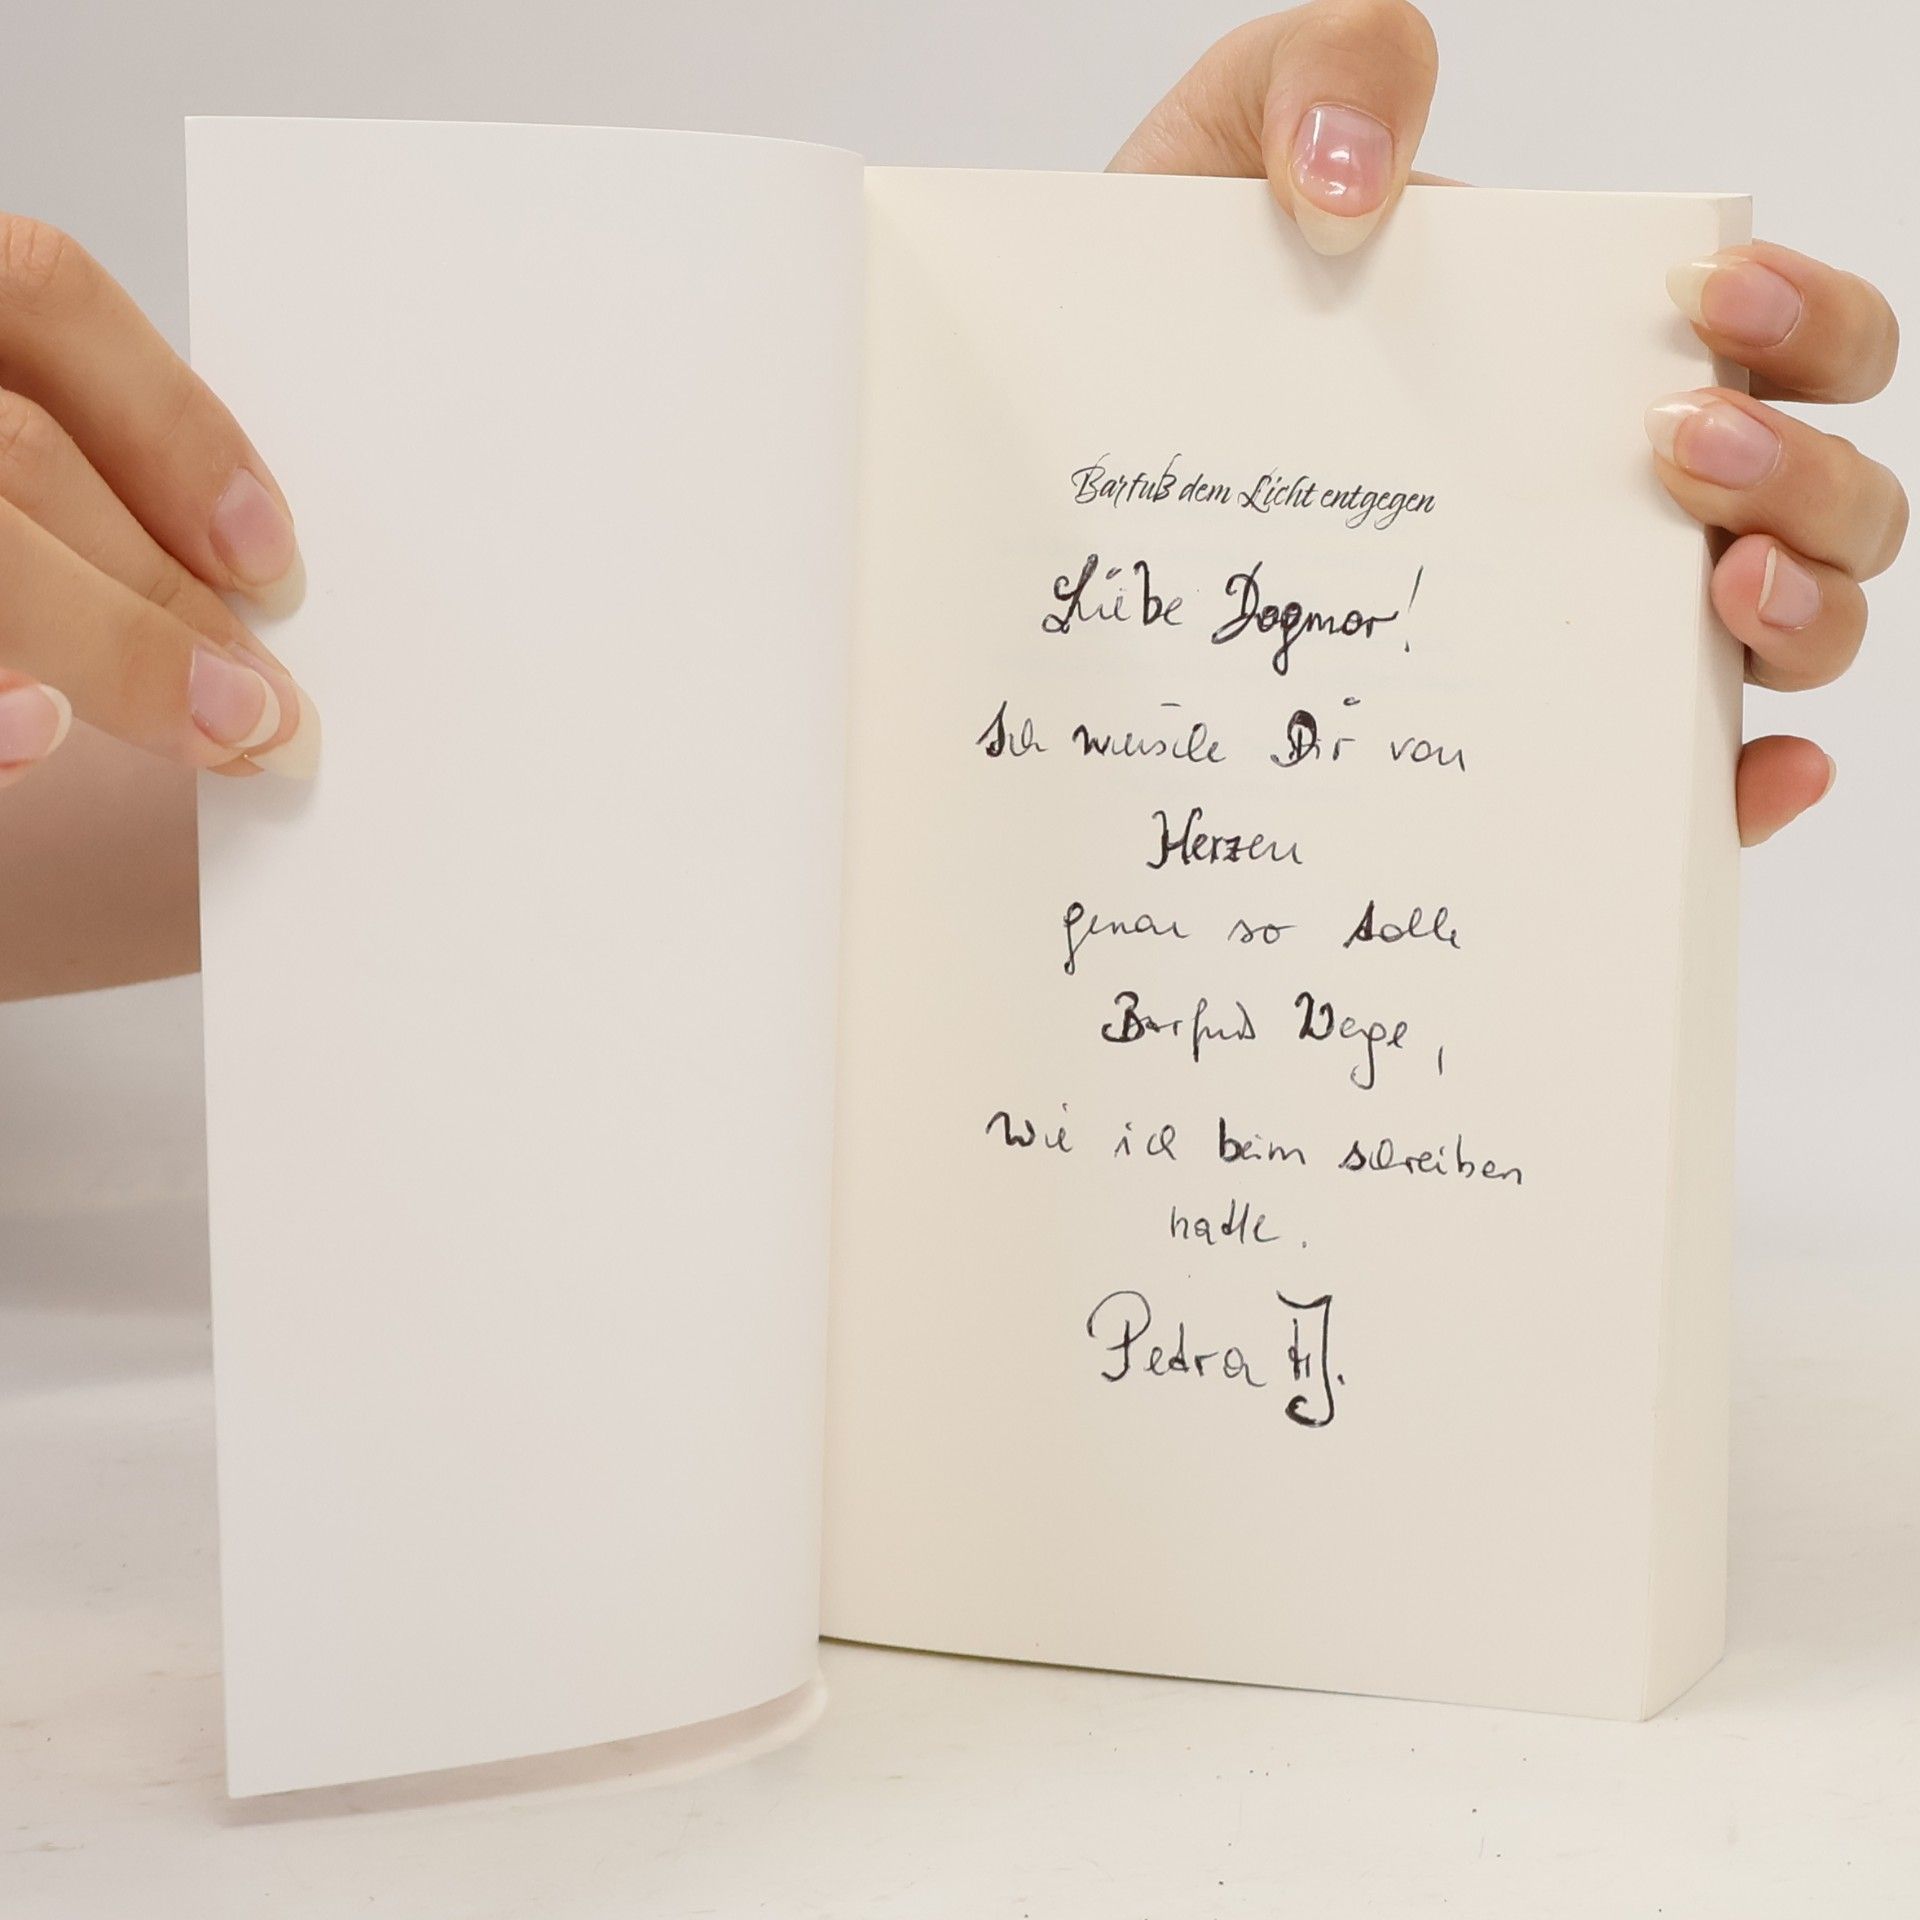 Barfuß dem Licht entgegen
Liebe Dagmar!
Ich wünsche Dir von
Herzen
genau so tolle
Barfuß Wege,
wie ich beim schreiben
hatte.
Petra